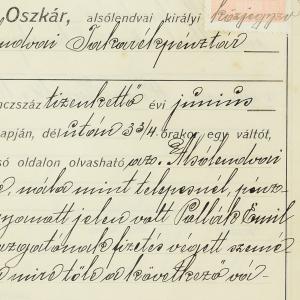 Oszkár, alsólendvai királyi közjegyző
Takarékpénztár
nczszáz tizenkettő évi június
apján, dél után 3 3/4 órakor egy váltót,
só oldalon olvasható azo. Alsólendvai
mint telepesnél, pénz-
nyomatt jelen volt Pollák Emil
azgatónak fizetés végett szemé-
mire tőle a következő vá-